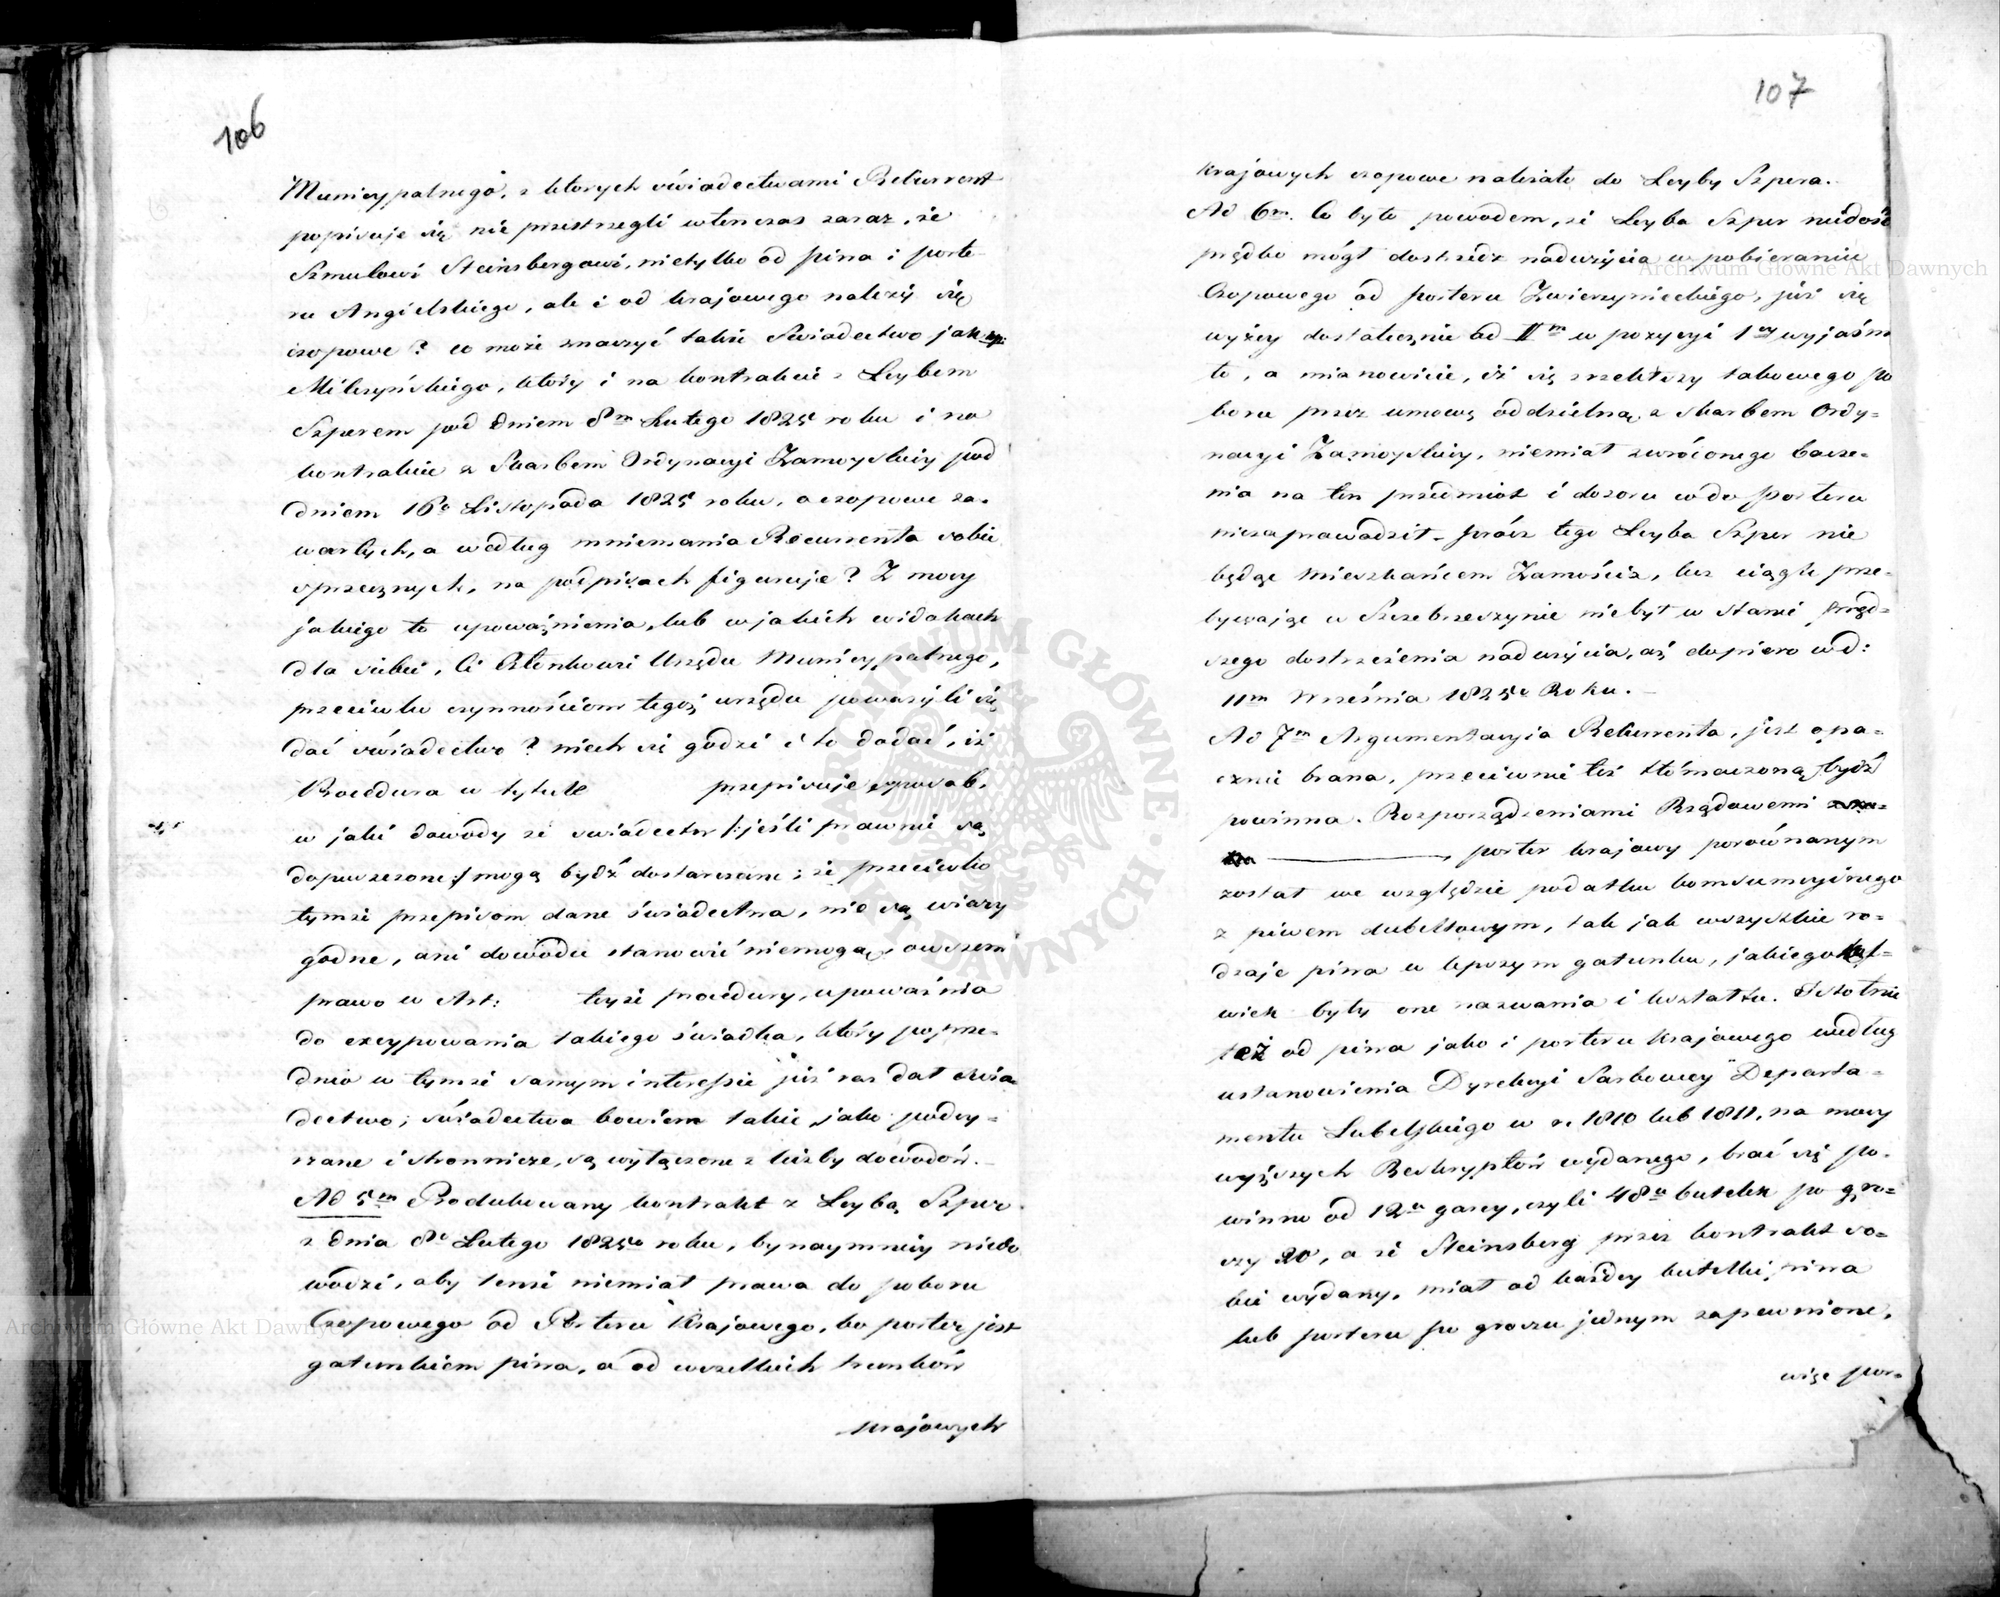 106
Municypalnego, z których świadectwami Rekurrent
popisuje się nie przestrzegli wtenczas zaraz, że
Szmulowi Steinsbergowi, nietylko od piwa i porte-
ru Angielskiego, ale i od krajowego należy się
czopowe? co może znaczyć takie Świadectwo jak np:
Milczyńskiego, który i na kontrakcie z Leybem
Szperem pod dniem 8m Lutego 1825 roku i na
kontrakcie z Skarbem Ordynacyi Zamoyskiey pod
dniem 16o Listopada 1825 roku, o czopowe za-
wartych, a według mniemania Recurrenta sobie
sprzecznych, na podpisach figuruje? Z mocy
jakiego to upoważnienia, lub w jakich widokach
dla siebie, Ci Członkowie Urzędu Municypalnego,
przeciwko czynnościom tegoż urzędu poważyli się
dać świadectwo? niech się godzi i to dodać, iż
Procedura w tytule przepisuje sposób,
w jaki dowody ze świadectw /: jeśli prawnie są
dopuszczone :/ mogą bydź dostarczane; że przeciwko
tymże przepisom dane świadectwa, nie są wiary
godne, ani dowodu stanowić niemogą, owszem
prawo w Art: teyże procedury, upoważnia
do excypowania takiego świadka, który poprze-
dnio w tymże samym interessie już raz dał świa-
dectwo; świadectwa bowiem takie, jako podey-
rzane i stronnicze, są wyłączone z liczby dowodów.
Ad 5m Produkowany kontrakt z Leybą Szper
z dnia 8o Lutego 1825o roku, bynaymniey niedo
wodzi, aby tenże niemiał prawa do poboru
Czopowego od Porteru Krajowego, bo porter jest
gatunkiem piwa, a od wszelkich trunków
krajowych
107
Krajowych czopowe należało do Leyby Szpera.
Ad 6m. Co było powodem, że Leyba Szper niedość
prędko mógł dostrzedz nadużycia w pobieraniu
Czopowego od porteru Zwierzynieckiego, już się
wyżey dostatecznie ad IIm w pozycyi 1ey wyjaśni
ło, a mianowicie, iż się zrzekłszy takowego po
boru przez umowę oddzielną z skarbem Ordy-
nacyi Zamoyskiey, niemiał zwróconego bacze-
nia na ten przedmiot i dozoru w do porteru
niezaprowadził. prócz tego Leyba Szper nie
będąc mieszkańcem Zamościa, lecz ciągle prze-
bywając w Szczebrzeszynie niebył w stanie pręd-
szego dostrzeżenia nadużycia, aż dopiero w d:
11m Września 1825o Roku.
Ad 7m Argumentacyja Rekurrenta, jest opa-
cznie brana, przeciwnie też tłómaczoną bydź
powinna. Rozporządzeniami Rządowemi
porter krajowy porównanym
został we względzie podatku konsumcyjnego
z piwem dubeltowym, tak jak wszystkie ro-
dzaje piwa w lepszym gatunku, jakiegokol-
wiek były one nazwania i kształtu. Istotnie
też od piwa jako i porteru krajowego według
ustanowienia Dyrekcyi Skarbowey Departa-
mentu Lubelskiego w r. 1810 lub 1811, na mocy
wyższych Reskryptów wydanego, brać się po-
winno od 12u garcy, czyli 48u butelek po gro-
szy 20, a że Steinsberg przez kontrakt so-
bie wydany, miał od każdey butelki piwa
lub porteru po groszu jednym zapewnione,
więc por-